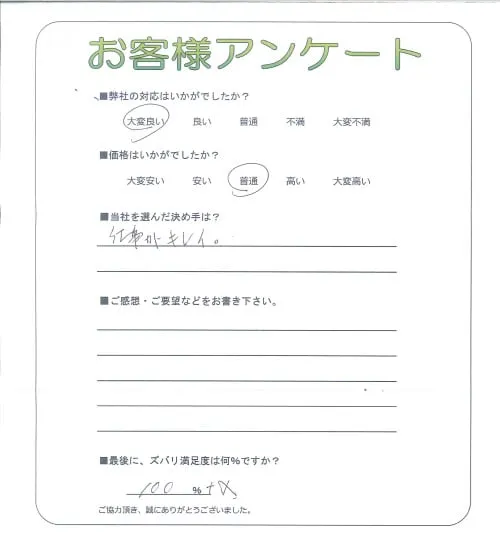 お客様アンケート
■弊社の対応はいかがでしたか？
大変良い 良い 普通 不満 大変不満
■価格はいかがでしたか？
大変安い 安い 普通 高い 大変高い
■当社を選んだ決め手は？
仕事がキレイ。
■ご感想・ご要望などをお書き下さい。
■最後に、ズバリ満足度は何%ですか？
100 %+α
ご協力頂き、誠にありがとうございました。